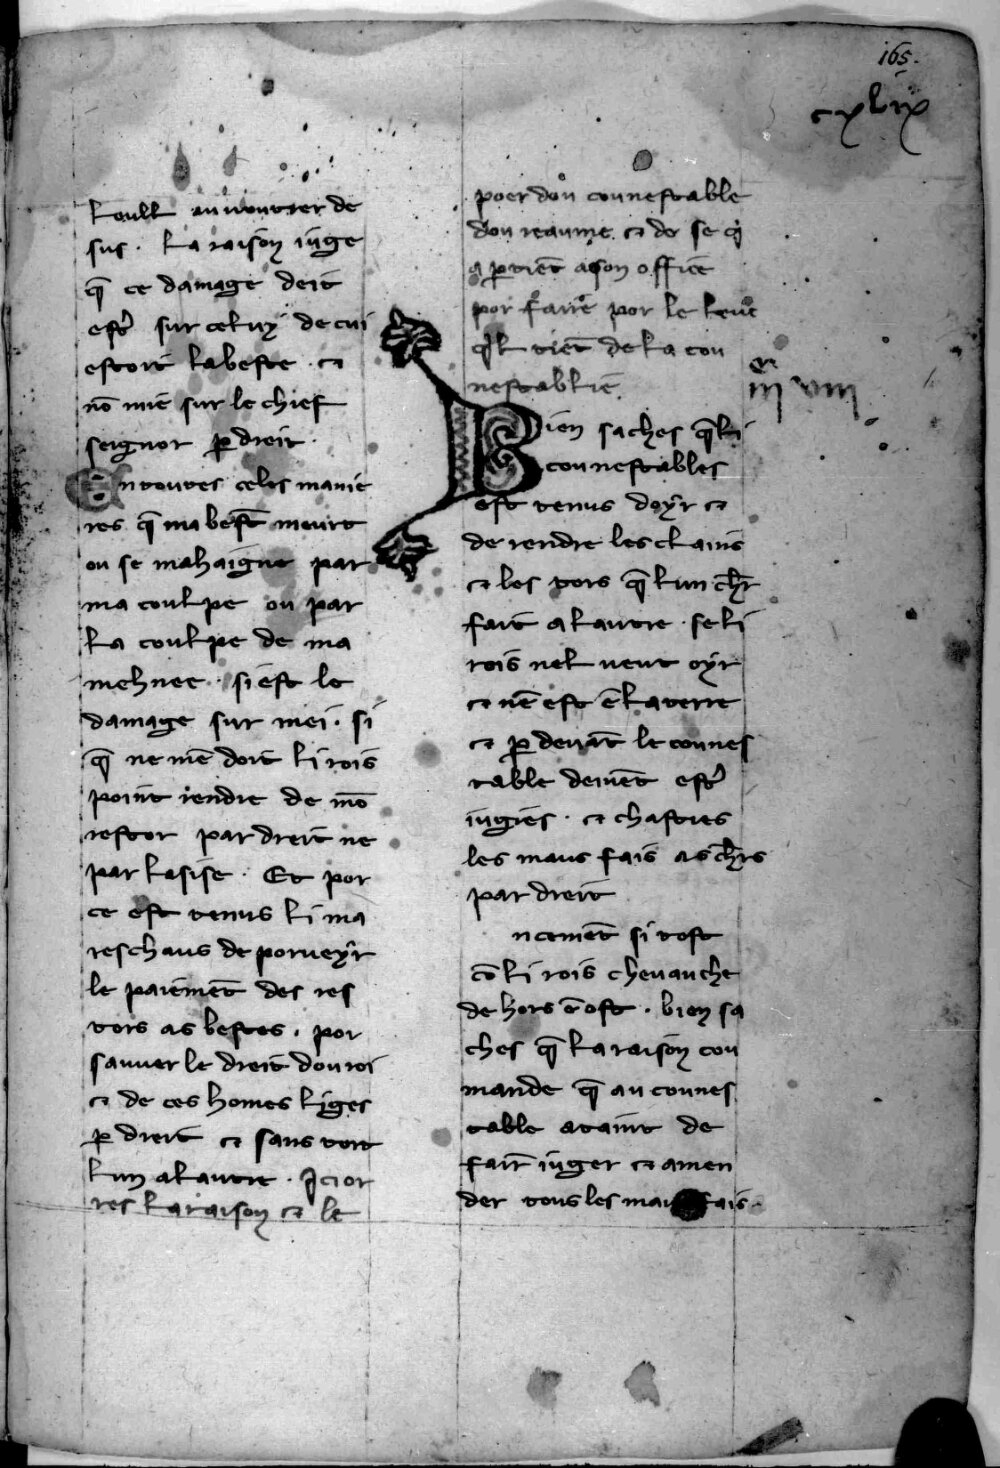 165.
cxlix
de
sus . la raison iuge
q̃ ce damage deit
estr̾ sur celuy de cui
estoit labeste . ⁊
nõ mie sur le chief
seignor ꝑ dreit .
En toutes celes manie
res q̃ ma best̃ meurt
ou se mahaigne par
ma coulpe ou par
la coulpe de ma
mehnee . si est le
damage sur mei . si
q̃ ne mẽ doit li rois
point rendre de mõ
restor par dreit ne
par lasise . Et por
ce est tenus li ma
reschaus de porueyr
le paiemẽt des res
tors as bestes . por
sauuer le dreit dou roi
⁊ de ces homes liges
ꝑ dreit ⁊ sans tort
lun alautre .
res la raison ⁊ le
poer dou connestable
dou reaume ⁊ de se q̾
aꝑtiẽt a son office
por faire por le leuc
q̾l tiẽt de la con
nestablie
iiii viii
Bien saches q̃ li
connestables
est tenus doyr ⁊
de rendre les clains
⁊ les tors q̃ lun chr̃
fait a lautre . se li
rois nel veut oyr
⁊ nẽ est ẽ la terre
⁊ ꝑ deuãt le connes
table deiuẽt estr̾
iugies . ⁊ chasties
les maus fais as chr̃s
par dreit
ncemẽt si tost
cõ li rois cheuauche
de hors ẽ ost . bien sa
ches q̃ la raison cou
mande q̃ au connes
table ataint de
fair̃ iuger ⁊ amen
der tous les maus fais .